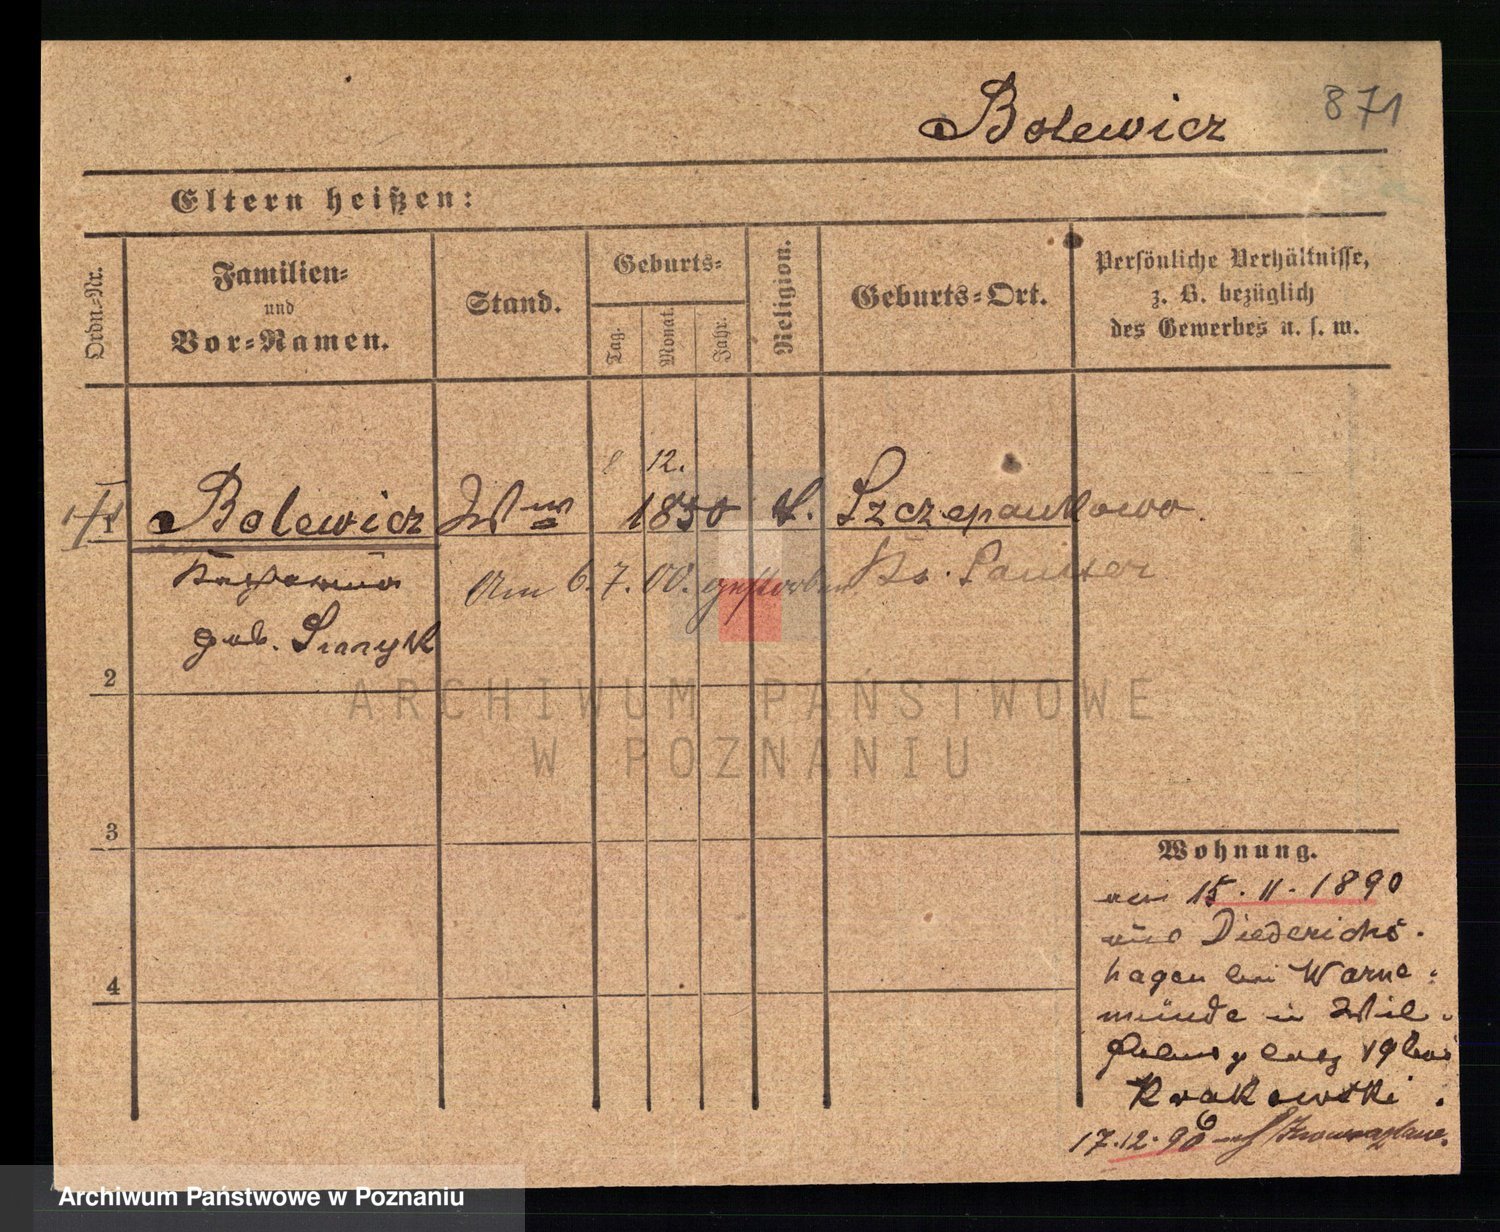 Bolewicz
871
Eltern heißen:
Ordn.-Nr.
Familien-
und
Vor-Namen.
Stand.
Geburts-
Tag.
Monat.
Jahr.
Religion.
Geburts-Ort.
Persönliche Verhältnisse,
z. B. bezüglich
des Gewerbes u. s. w.
8 12.
1
Bolewicz Wwe 1830 k. Szczepankowo
Katharina
Am 6.7.00. gestorben Kr. Samter
geb.
2
ARCHIWUM PAŃSTWOWE
W POZNANIU
3
Wohnung.
am 15.11.1890
aus Diederichs-
hagen bei Warne-
münde in Wil-
19 bei
Krakowski.
4
17.12.96
Archiwum Państwowe w Poznaniu